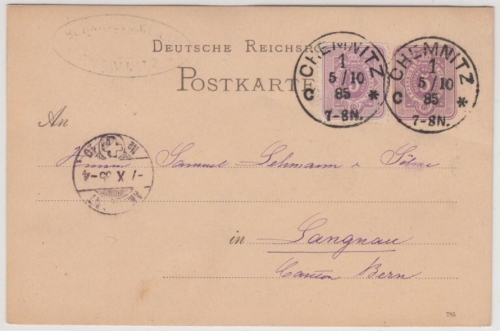 DEUTSCHE REICHSP
POSTKARTE
CHEMNITZ
1
5/10
85
7-8N.
C *
CHEMNITZ
1
5/10
85
7-8N.
C *
An
Herrn Samuel Lehmann & Söhne
X 85-4
in Langnau
Canton Bern
785